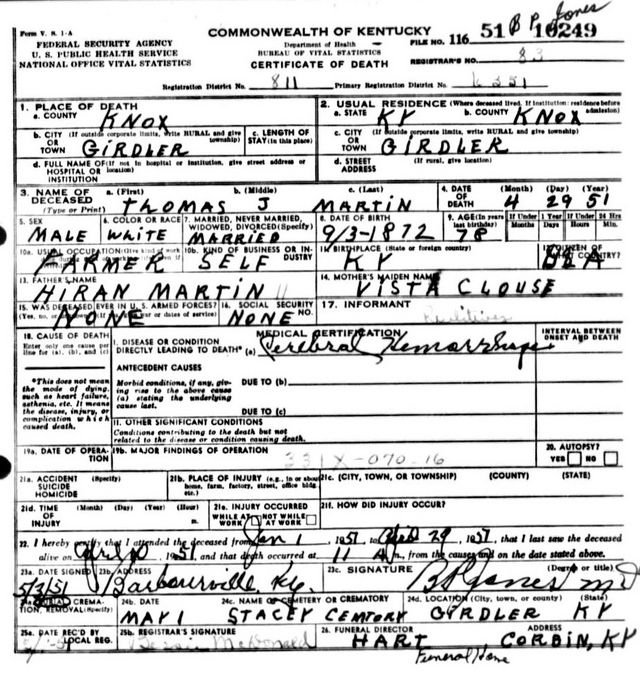 B P Jones
Form V. S. 1-A
FEDERAL SECURITY AGENCY
U. S. PUBLIC HEALTH SERVICE
NATIONAL OFFICE VITAL STATISTICS
COMMONWEALTH OF KENTUCKY
Department of Health
BUREAU OF VITAL STATISTICS
CERTIFICATE OF DEATH
FILE NO. 116 51 10249
REGISTRAR'S NO. 83
Registration District No. 811 Primary Registration District No. 6351
1. PLACE OF DEATH
a. COUNTY KNOX
b. CITY (If outside corporate limits, write RURAL and give township) OR TOWN GIRDLER
c. LENGTH OF STAY (in this place)
d. FULL NAME OF (If not in hospital or institution, give street address or location) HOSPITAL OR INSTITUTION
2. USUAL RESIDENCE (Where deceased lived. If institution: residence before admission)
a. STATE KY b. COUNTY KNOX
c. CITY (If outside corporate limits, write RURAL and give township) OR TOWN GIRDLER
d. STREET ADDRESS (If rural, give location)
3. NAME OF DECEASED (Type or Print) a. (First) THOMAS b. (Middle) J c. (Last) MARTIN
4. DATE OF DEATH (Month) (Day) (Year) 4 29 51
5. SEX MALE
6. COLOR OR RACE WHITE
7. MARRIED, NEVER MARRIED, WIDOWED, DIVORCED (Specify) MARRIED
8. DATE OF BIRTH 9/3-1872
9. AGE (In years last birthday) 78 If Under 1 Year Months Days If Under 24 Hrs Hours Min.
10a. USUAL OCCUPATION (Give kind of work FARMER
10b. KIND OF BUSINESS OR INDUSTRY SELF
11. BIRTHPLACE (State or foreign country) KY
12. CITIZEN OF
13. FATHER'S NAME HIRAN MARTIN
14. MOTHER'S MAIDEN NAME VISTA CLOUSE
15. WAS DECEASED EVER IN U. S. ARMED FORCES? (Yes, no, or dates of service) NONE
16. SOCIAL SECURITY NO. NONE
17. INFORMANT
18. CAUSE OF DEATH
Enter only one cause per line for (a), (b), and (c)
*This does not mean the mode of dying, such as heart failure, asthenia, etc. It means the disease, injury, or complication which caused death.
MEDICAL CERTIFICATION
I. DISEASE OR CONDITION DIRECTLY LEADING TO DEATH* (a) Cerebral Hemorrhage
INTERVAL BETWEEN ONSET AND DEATH
ANTECEDENT CAUSES
Morbid conditions, if any, giving rise to the above cause (a) stating the underlying cause last.
DUE TO (b)
DUE TO (c)
II. OTHER SIGNIFICANT CONDITIONS
Conditions contributing to the death but not related to the disease or condition causing death.
19a. DATE OF OPERATION
19b. MAJOR FINDINGS OF OPERATION
331X-070-16
20. AUTOPSY? YES NO
21a. ACCIDENT SUICIDE HOMICIDE (Specify)
21b. PLACE OF INJURY (e.g., in or about home, farm, factory, street, office bldg. etc.)
21c. (CITY, TOWN, OR TOWNSHIP) (COUNTY) (STATE)
21d. TIME OF INJURY (Month) (Day) (Year) (Hour) m.
21e. INJURY OCCURRED WHILE AT WORK NOT WHILE AT WORK
21f. HOW DID INJURY OCCUR?
22. I hereby certify that I attended the deceased from Jan 1, 1951, to April 29, 1951, that I last saw the deceased
alive on 1951, and that death occurred at 11 A m., from the causes and on the date stated above.
23a. DATE SIGNED 5/3/51
23b. ADDRESS Barbourville, Ky.
23c. SIGNATURE (Degree or title) B P Jones M D
24a. BURIAL, CREMATION, REMOVAL (Specify)
24b. DATE MAY 1
24c. NAME OF CEMETERY OR CREMATORY STACEY CEMTORY
24d. LOCATION (City, town, or county) (State) GIRDLER KY
25a. DATE REC'D BY LOCAL REG.
25b. REGISTRAR'S SIGNATURE McDonald
26. FUNERAL DIRECTOR HART Funeral Home
ADDRESS CORBIN, KY